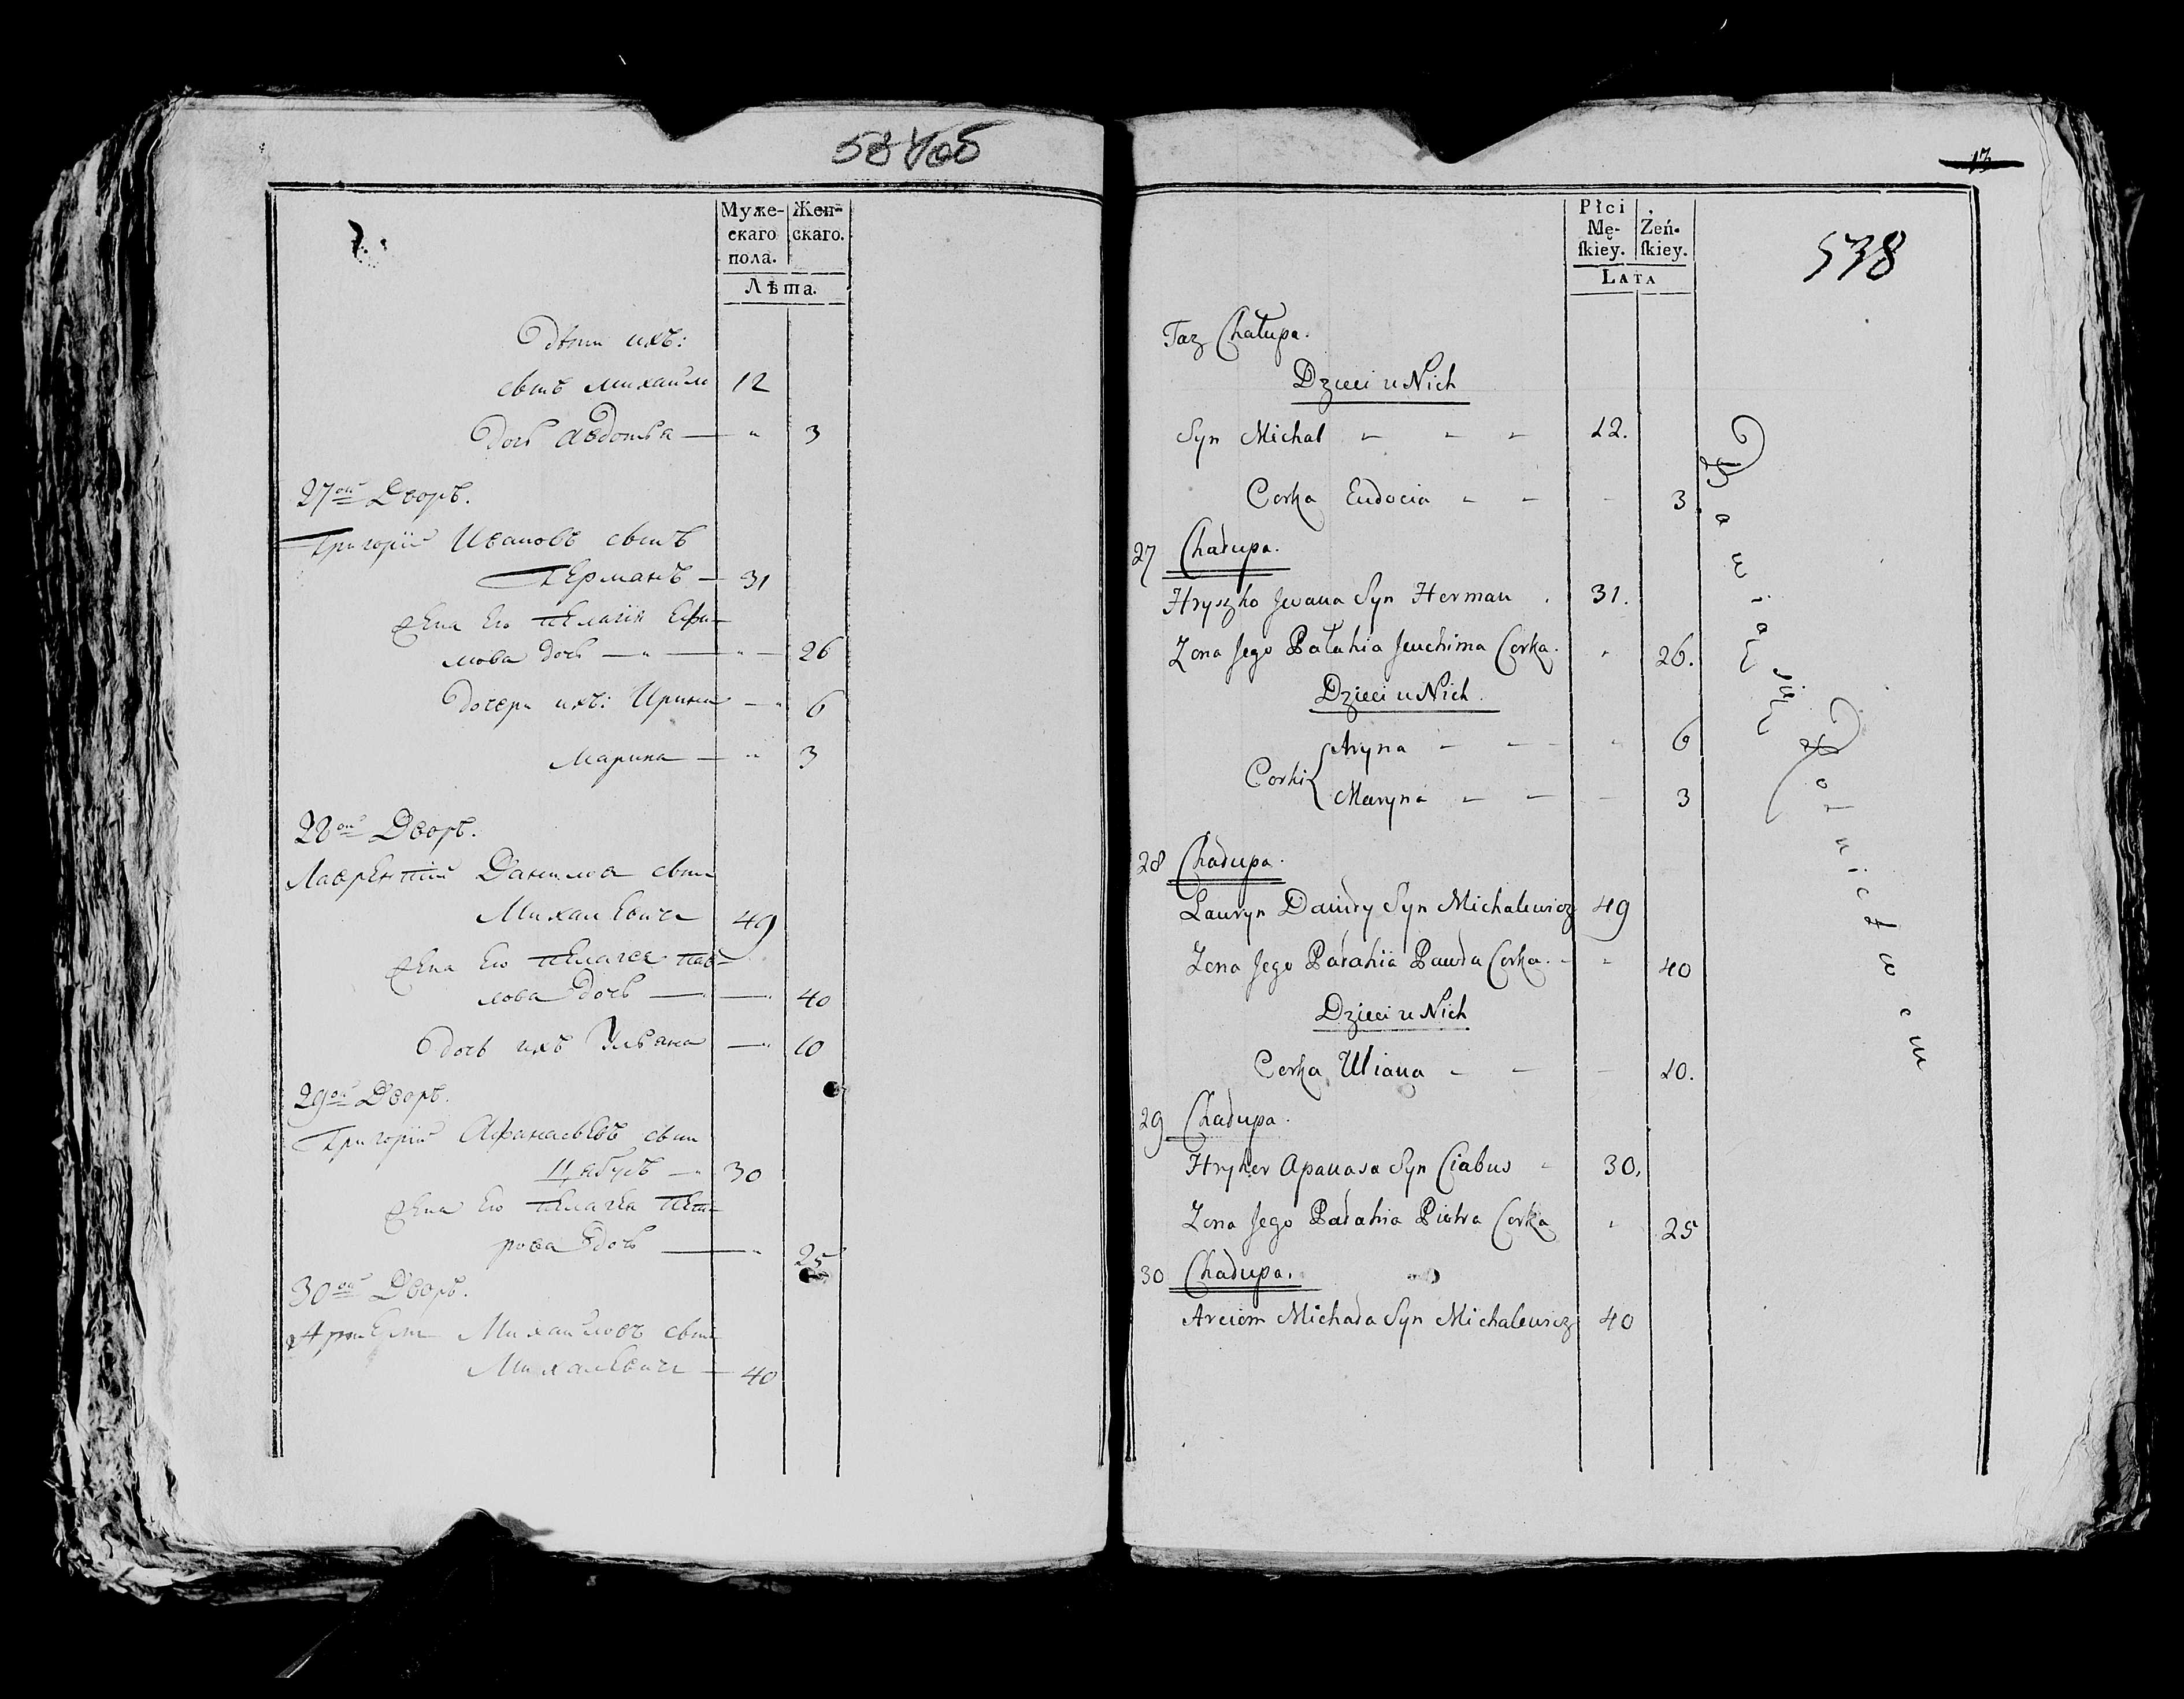 Муже-
скаго
пола.
Жен-
скаго.
Лѣта.
Дѣти ихъ:
сынъ михайло 12
Дочь Авдотья — „ 3
27ой Дворъ.
Григорій Ивановъ сынъ
Германъ — 31
Жена Его Пелагія Ефи-
мова дочь — „ — „ — 26
Дочери ихъ: Ирина — „ 6
Марина — „ 3
28ой Дворъ.
Лаврентій Данилова сынъ
Михалевичь 49
Жена Его Пелагея Пав-
лова Дочь — — 40
Дочь ихъ Ульяна — „ 10
29ой Дворъ.
Григорій Афанасьевъ сынъ
Цябусъ — 30
Жена Его Пелагея Пет-
рова Дочь — „ 25
30ой Дворъ.
Артемъ Михайловъ сынъ
Михалевичь — 40
13
Płci
Mę-
ſkiey.
Żeń-
ſkiey.
Lata
538
Taz Chałupa.
Dzieci u Nich
Syn Michał - - - 12.
Corka Eudocia - - - 3
27 Chałupa.
Hryszko Jwana Syn Herman . 31.
Zona Jego Pałahia Jeuchima Corka. „ 26.
Dzieci u Nich.
Corki { Aryna - - - 6
Maryna - - - 3
28 Chałupa.
Lauryn Daniły Syn Michalewicz 49
Zona Jego Pałahia Pawła Corka. - - 40
Dzieci u Nich
Corka Uliana - - - 10.
29 Chałupa.
Hryher Apanasa Syn Ciabus - 30.
Zona Jego Pałahia Piotra Corka „ 25
30 Chałupa.
Arciom Michała Syn Michalewicz 40
Bawiąsię Rolnictwem